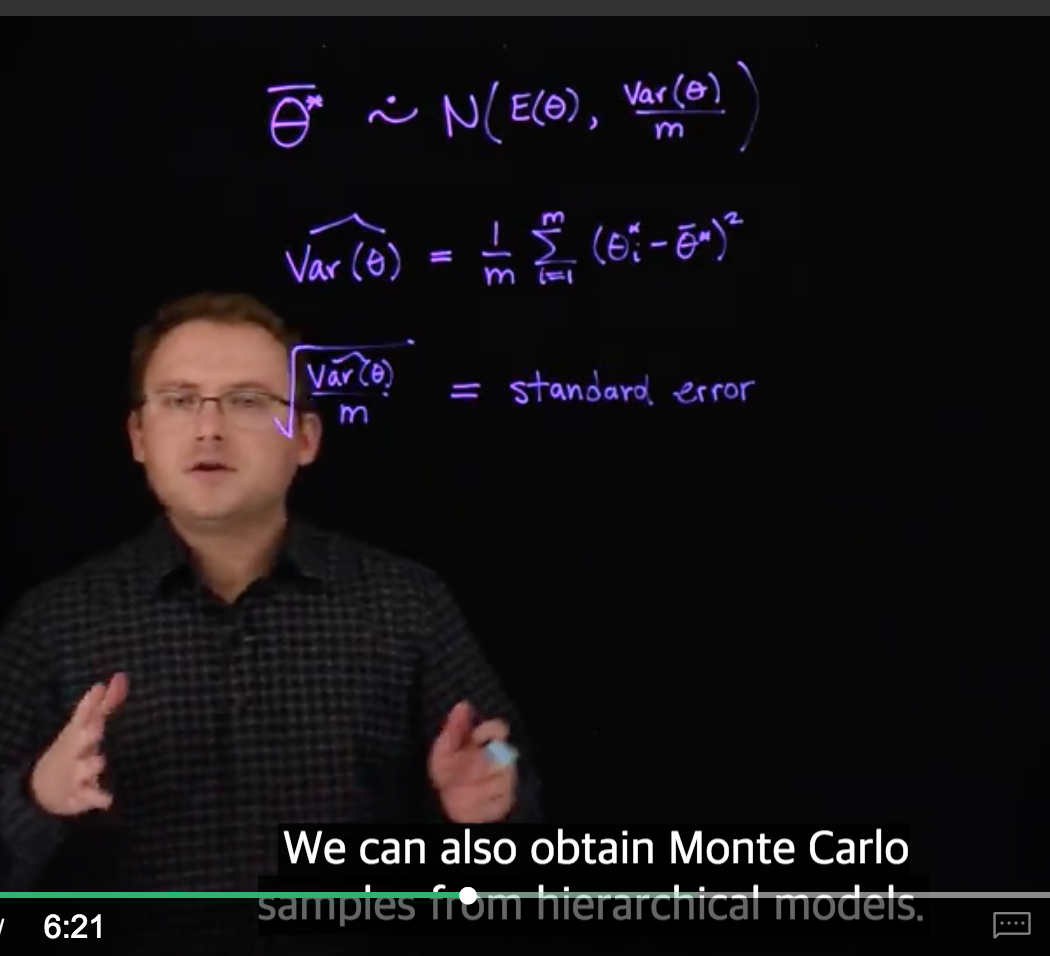 θ̄* ∼̇ N(E(θ), Var(θ)/m)
\widehat{Var(θ)} = 1/m ∑_{i=1}^{m} (θᵢ* − θ̄*)²
√(\widehat{Var(θ)}/m) = standard error
We can also obtain Monte Carlo
samples from hierarchical models.
6:21